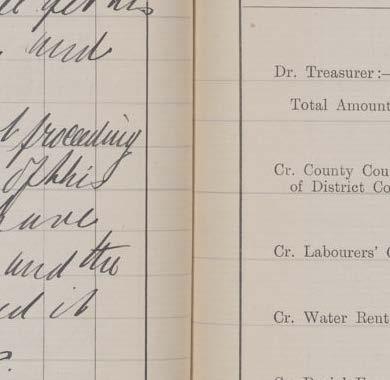 and
proceeding
of this
have
and the
it
Dr. Treasurer:—
Total Amount
Cr. County Cou
of District Co
Cr. Labourers'
Cr. Water Rent